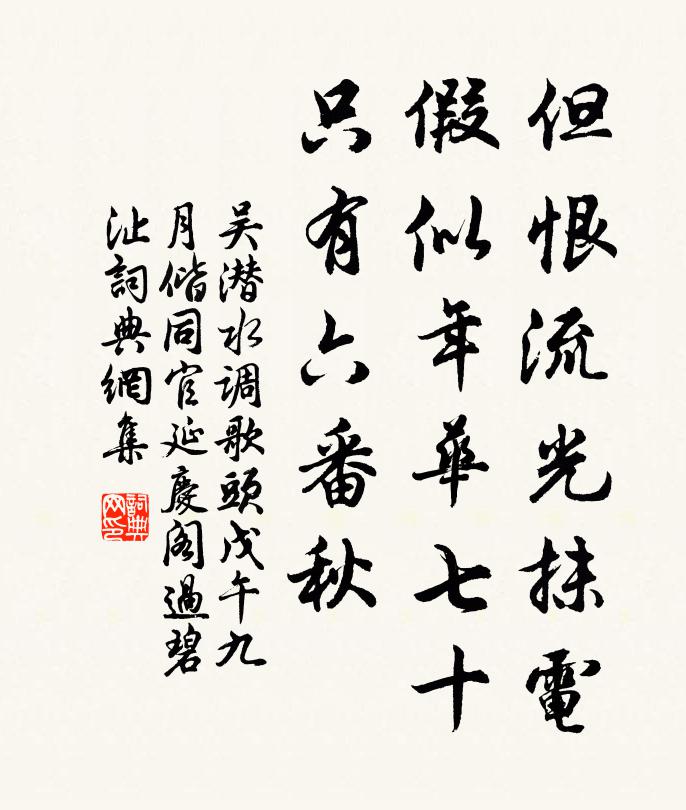 但恨流光抹電
假似年華七十
只有六番秋
吴潜水调歌頭戊午九
月偕同官延慶閣過碧
沚詞典網集
詞典
网印